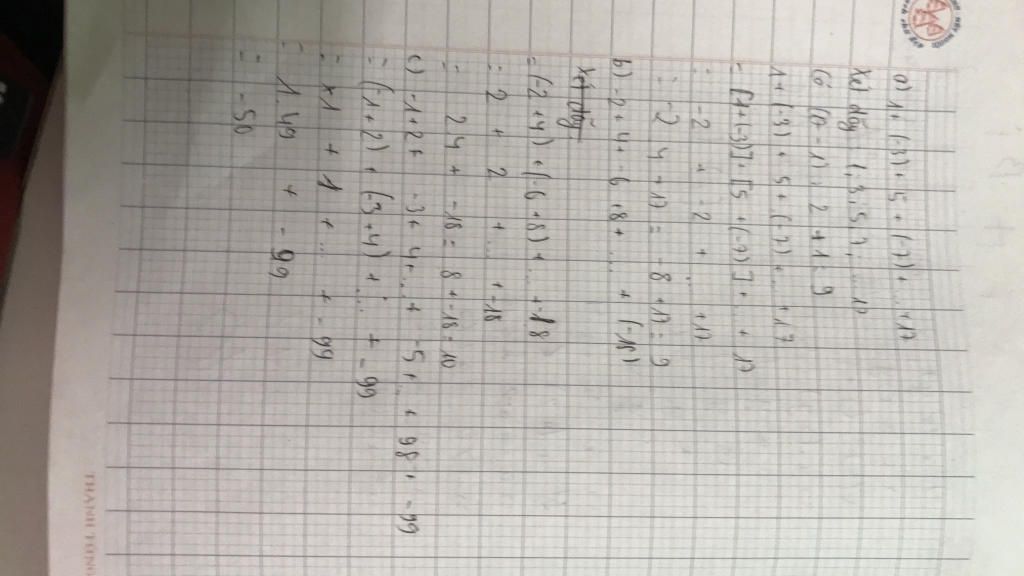 a) 1 + (-3) + 5 + (-7) + ... + 17
Xét dãy 1, 3, 5, 7, ... 17
Có (17 - 1) : 2 + 1 = 9
1 + (-3) + 5 + (-7) + ... + 17
= [1 + (-3)] + [5 + (-7)] + ... + 17
= -2 + -2 + ... + 17
= -2 . 4 + 17 = -8 + 17 = 9
b) -2 + 4 + -6 + 8 + ... + (-18)
Xét dãy
= (-2 + 4) + (-6 + 8) + ... + -18
= 2 + 2 + ... + -18
= 2.4 + -18 = 8 + -18 = 10
c) -1 + 2 + -3 + 4 + ... + -5 + ... + 98 + -99
= (-1 + 2) + (-3 + 4) + ... + -99
= 1 + 1 + ... + -99
= 1.49 + -99
= -50